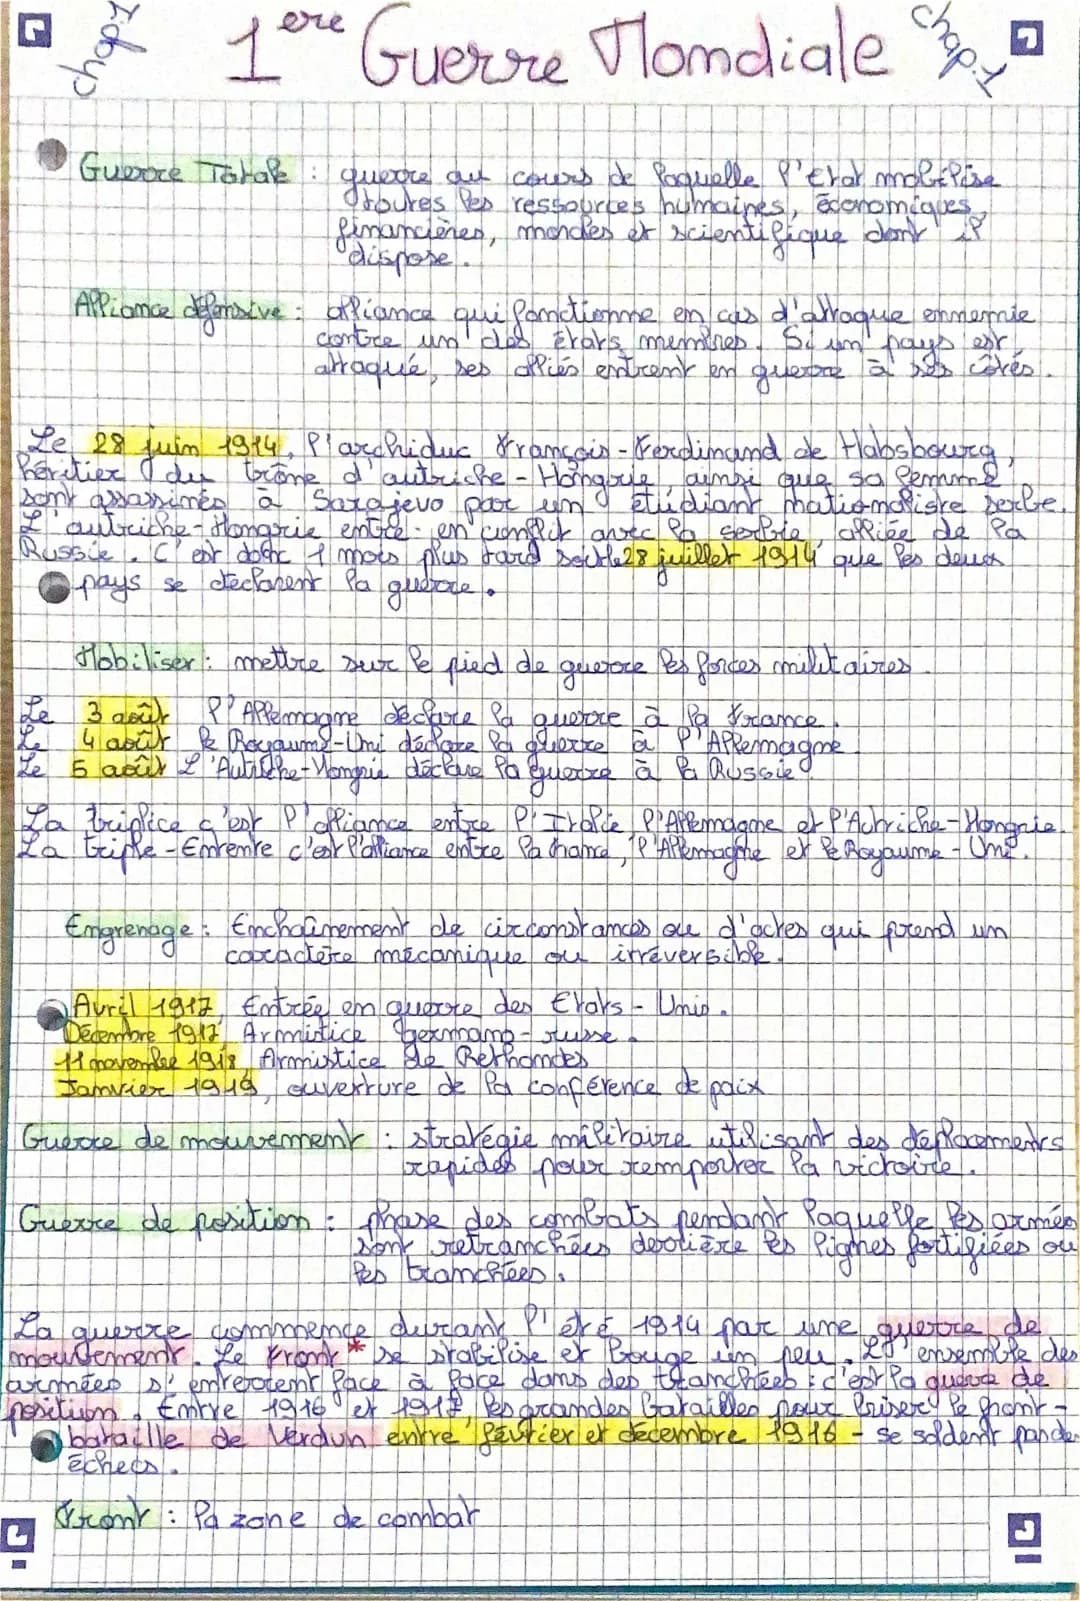 chap1
1ere Guerre Mondiale
chap.1
Guerre Totale : guerre au cours de laquelle l'Etat mobilise
toutes les ressources humaines, économiques,
financières, morales et scientifique dont il
dispose.
Alliance défensive : alliance qui fonctionne en cas d'attaque ennemie
contre un des États membres. Si un pays est
attaqué, ses alliés entrent en guerre à ses côtés.
Le 28 juin 1914, l'archiduc François-Ferdinand de Habsbourg,
héritier du trône d'autriche-Hongrie, ainsi que sa femme
sont assassinés à Sarajevo par un étudiant nationaliste serbe.
L'autriche-Hongrie entre en conflit avec la serbie, alliée de la
Russie. C'est donc 1 mois plus tard le 28 juillet 1914 que les deux
pays se déclarent la guerre.
Mobiliser : mettre sur le pied de guerre les forces militaires
Le 3 août l'Allemagne déclare la guerre à la France.
Le 4 août le Royaume-Uni déclare la guerre à l'Allemagne.
Le 5 août L'Autriche-Hongrie déclare la guerre à la Russie.
La triplice c'est l'alliance entre l'Italie, l'Allemagne et l'Autriche-Hongrie.
La triple-Entente c'est l'alliance entre la France, l'Allemagne et le Royaume-Uni.
Engrenage : Enchaînement de circonstances ou d'actes qui prend un
caractère mécanique ou irréversible.
Avril 1917, Entrée en guerre des Etats-Unis.
Décembre 1917, Armistice germano-russe.
11 novembre 1918, Armistice de Rethondes
Janvier 1919, ouverture de la conférence de paix
Guerre de mouvement : stratégie militaire utilisant des déplacements
rapides pour remporter la victoire.
Guerre de position : phase des combats pendant laquelle les armées
sont retranchées derrière les lignes fortifiées ou
les tranchées.
La guerre commence durant l'été 1914 par une guerre de
mouvement. Le Front* se stabilise et bouge un peu. L'ensemble des
armées s'enterrent face à face dans des tranchées : c'est la guerre de
position. Entre 1916 et 1917, les grandes batailles pour briser le front -
bataille de Verdun entre février et décembre 1916 - se soldent par de
échecs.
Front : la zone de combat